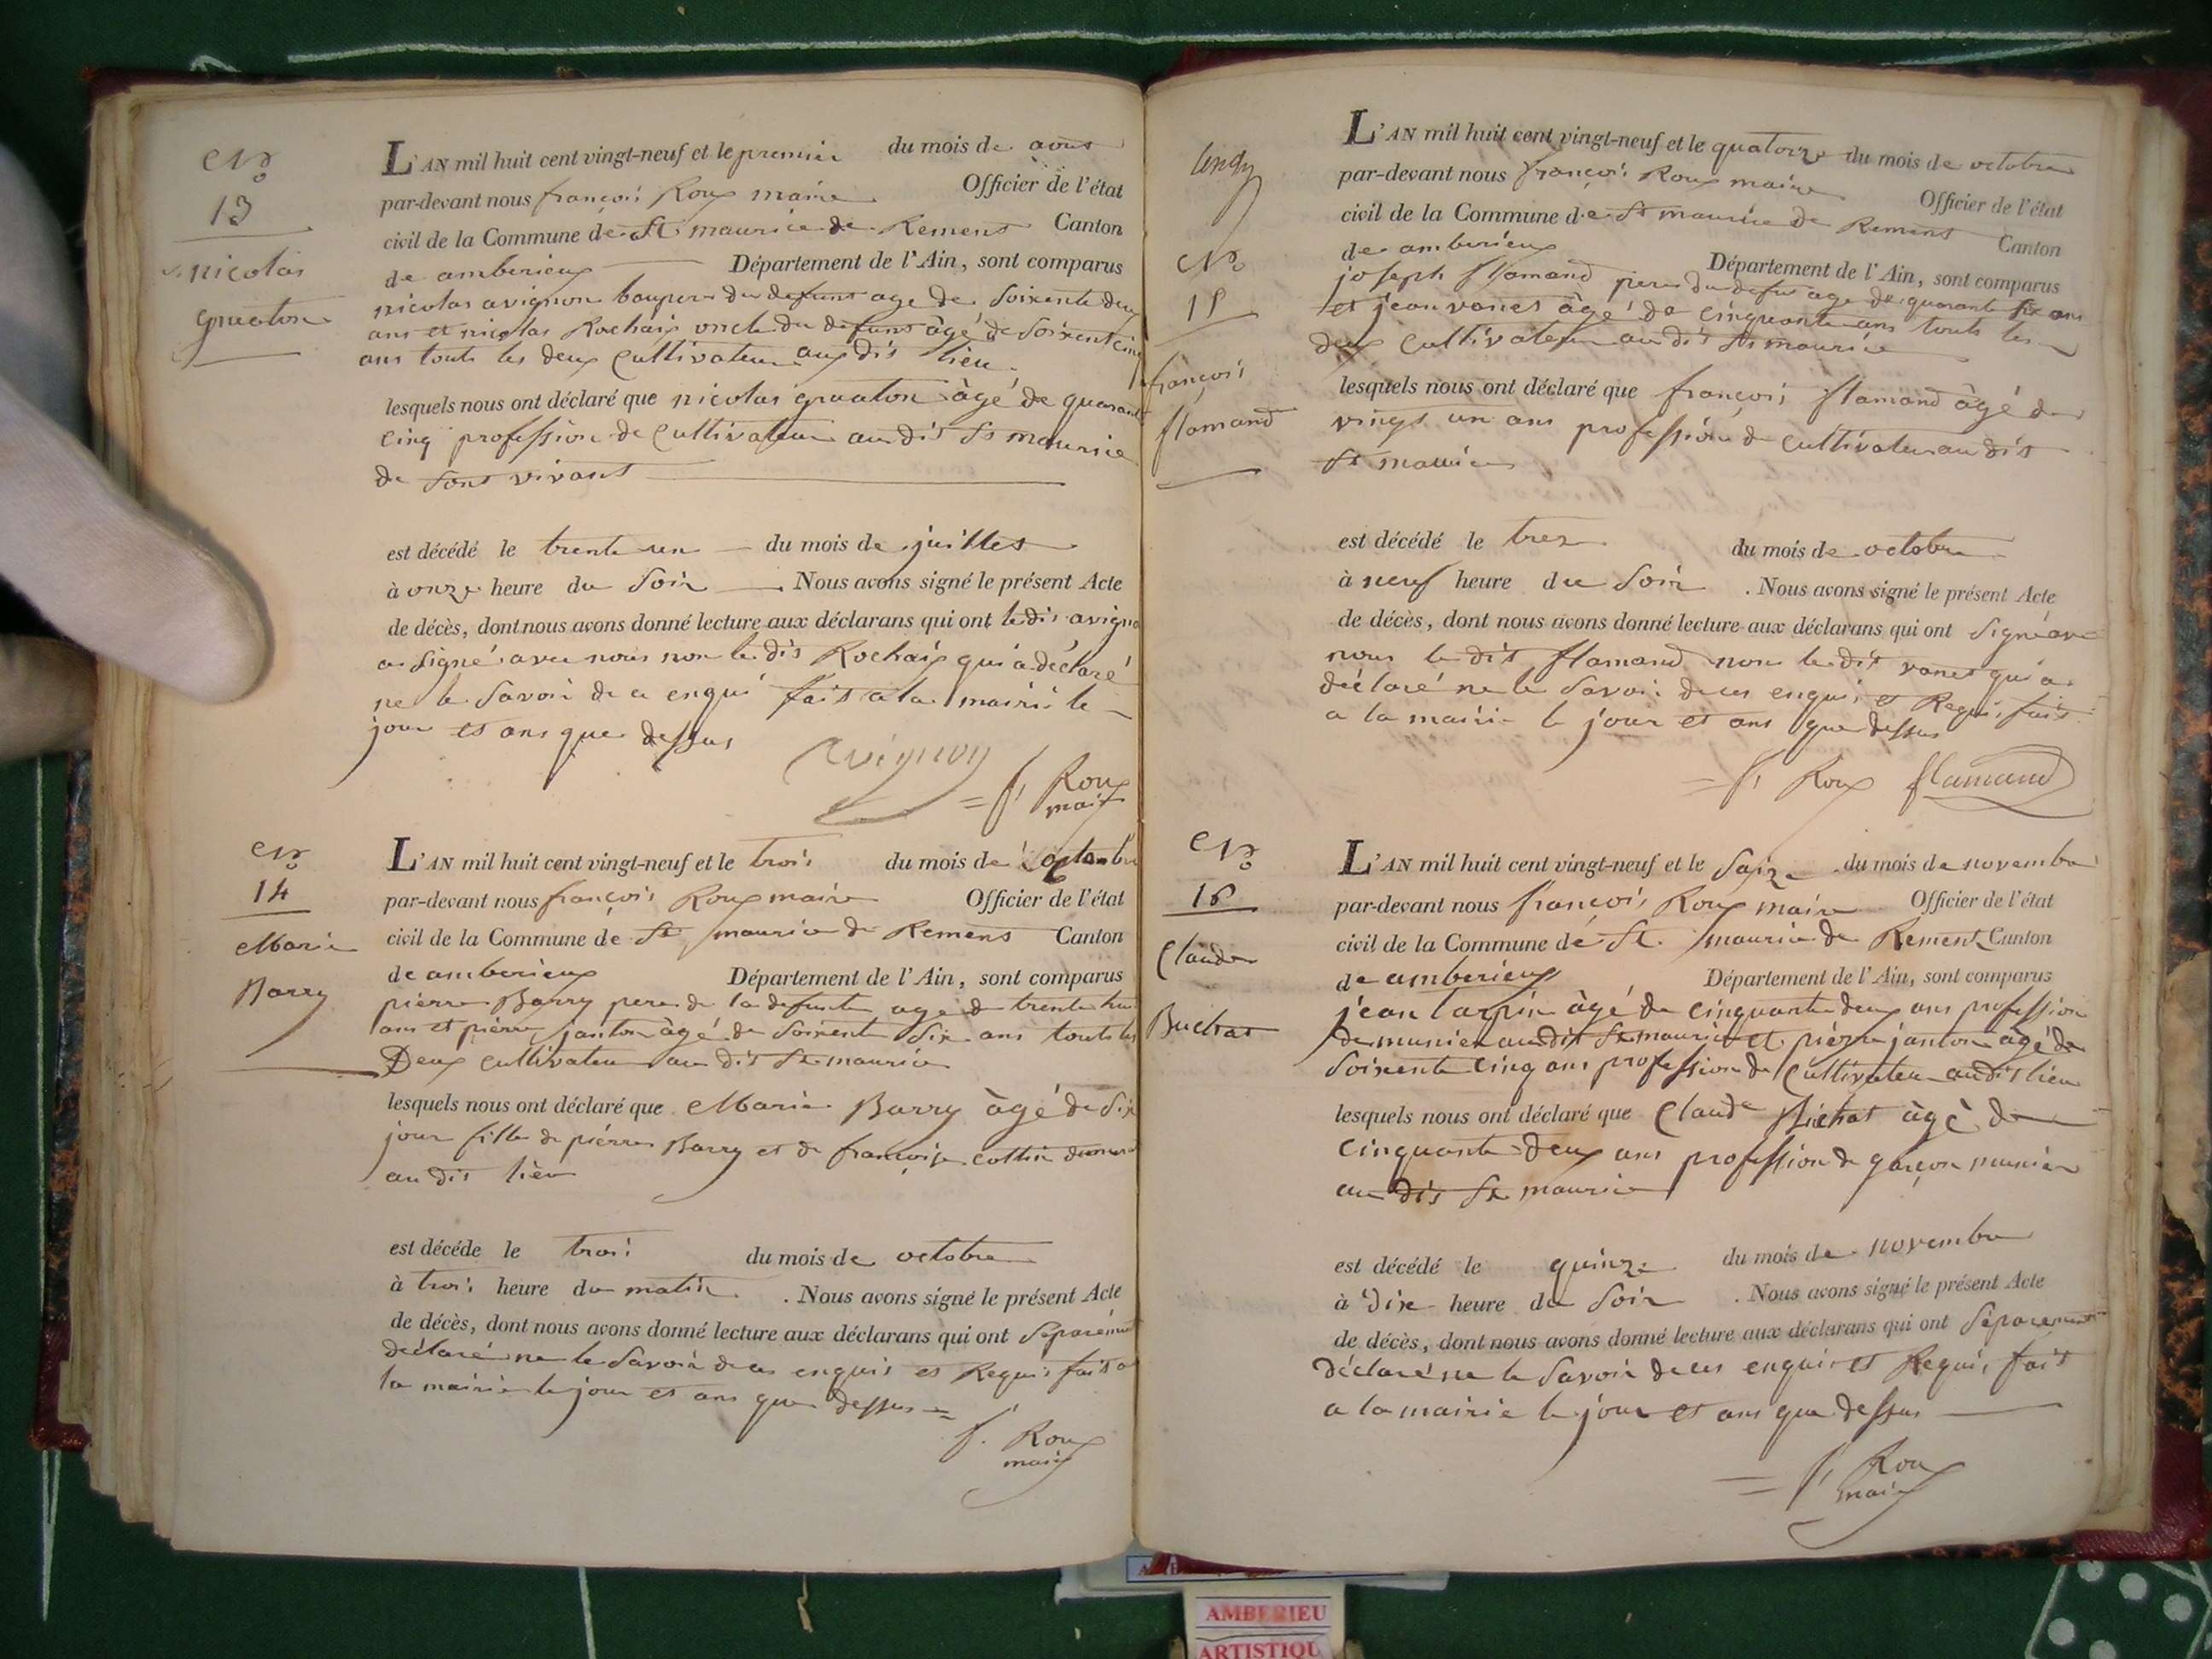 No
13
nicolas
gruaton
L'AN mil huit cent vingt-neuf et le premier du mois de aout
par-devant nous françois Roux maire Officier de l'état
civil de la Commune de St maurice de Remens Canton
de amberieux Département de l'Ain, sont comparus
nicolas avignon baupere du defunt age de soixente deux
ans et nicolas Rochaix oncle du defunt àgé de soixent cinq
ans touts les deux cultivateur aux dit lieu
lesquels nous ont déclaré que nicolas gruaton àgé de quarant
cinq profession de cultivateur au dit St maurice
de sont vivant
est décédé le trente un du mois de juillet
à onze heure du soir Nous avons signé le présent Acte
de décès, dont nous avons donné lecture aux déclarans qui ont le dit avigno
a signé avec nous non le dit Rochaix qui a déclaré
ne le savoir de ce enqui fait a la mairi le
jour et ans que dessus
avignon
f, Roux
maire
No
14
Marie
Barry
L'AN mil huit cent vingt-neuf et le trois du mois de
par-devant nous françois Roux maire Officier de l'état
civil de la Commune de St maurice de Remens Canton
de amberieux Département de l'Ain, sont comparus
pierre Barry pere de la defunte age de trente hui
ans et pierre janton àgé de soixente six ans touts les
Deux cultivateur au dit St maurice
lesquels nous ont déclaré que Marie Barry àgé de six
jour fille de piérre Barry et de françoise cottin
au dit lieu
est décéde le trois du mois de octobre
à trois heure du matin . Nous avons signé le présent Acte
de décès, dont nous avons donné lecture aux déclarans qui ont séparément
déclaré ne le savoir de ces enquis et Requis fait a
la mairie le jour et ans que dessus =
f. Roux
maire
No
15
françois
flamand
L'AN mil huit cent vingt-neuf et le quatorze du mois de octobre
par-devant nous françois Roux maire Officier de l'état
civil de la Commune de St maurice de Remens Canton
de amberieux Département de l'Ain, sont comparus
joseph flamand pere du defun age de quarante six ans
et jean vanet àgé de cinquante ans touts les
deux cultivateur au dit St maurice
lesquels nous ont déclaré que françois flamand àgé de
vingt un ans profession de cultivateur au dit
St maurice
est décédé le trez du mois de octobre
à neuf heure du soir . Nous avons signé le présent Acte
de décès, dont nous avons donné lecture aux déclarans qui ont signé ave
nous le dit flamand non le dit vanet qui a
déclaré ne le savoir de ces enqui et Requi, fait
a la mairie le jour et ans que dessus
= f, Roux flamand
No
16
Claude
Buchat
L'AN mil huit cent vingt-neuf et le saize du mois de novembre
par-devant nous françois Roux maire Officier de l'état
civil de la Commune de St. maurice de Remens Canton
de amberieux Département de l'Ain, sont comparus
jean tarpin àgé de cinquante deux ans profession
de munier au dit St maurice et piérre janton àgé de
soixente cinq ans profession de cultivateur au dit lieu
lesquels nous ont déclaré que Claude Bichat àgé de
cinquante deux ans profession de garçon munier
au dit St maurice
est décédé le quinze du mois de novembre
à dix heure du soir . Nous avons signé le présent Acte
de décès, dont nous avons donné lecture aux déclarans qui ont séparement
déclaré ne le savoir de ces enquis et Requi, fait
a la mairie le jour et ans que dessus
= f, Roux
maire
AMBERIEU
ARTISTIQU